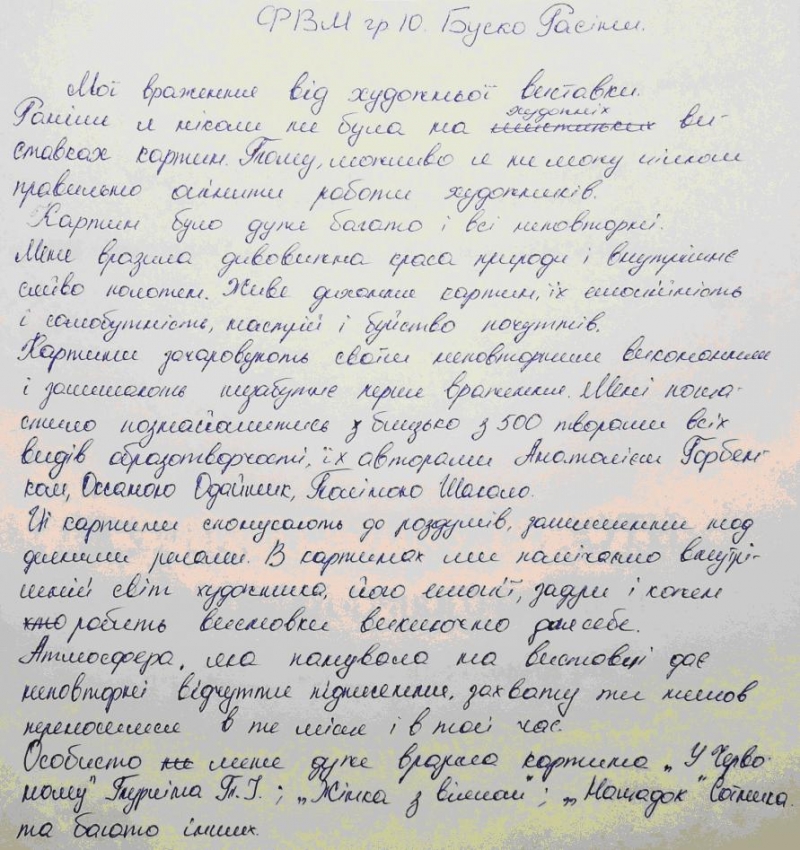 ФВМ гр 10. Буско Расіми.
Мої враження від художньої виставки.
Раніше я ніколи не була на художніх ви-
ставках картин. Тому, можливо я не можу цілком
правильно оцінити роботи художників.
Картин було дуже багато і всі неповторні.
Мене вразила дивовижна краса природи і внутрішнє
сяйво полотен. Живе дихання картин, їх емоційність
і самобутність, настрій і буйство почуттів.
Картини зачаровують своїм неповторним виконанням
і залишають незабутнє перше враження. Мені поща-
стило познайомитись з близько з 500 творами всіх
видів образотворчості, їх авторами Анатолієм Горбен-
ком, Оксаною Одайник, Поліною Шагало.
Ці картини спонукають до роздумів, залишення над
деякими речами. В картинах ми помічаємо внутрі-
шній світ художника, його емоції, задум і кожен
робить висновки виключно для себе.
Атмосфера, яка панувала на виставці дає
неповторні відчуття піднесення, захвату ти немов
переносишся в те місце і в той час.
Особисто мене дуже вразила картина „У Черво-
ному" Гнуріма Т.І.; „Жінка з віялом"; „Нащадок" Сотника
та багато інших.